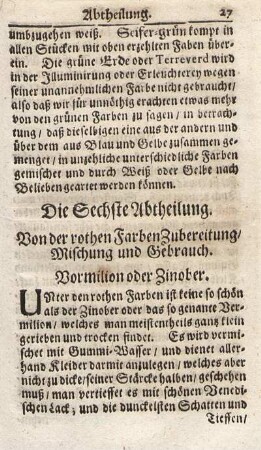 Abtheilung. 27
umbzugehen weiß. Seifer-grün kompt in
allen Stücken mit oben erzehlten Faben über-
ein. Die grüne Erde oder Terreverd wird
in der Illuminirung oder Erleuchterey wegen
seiner unannehmlichen Farbe nicht gebraucht/
also daß wir für unnöthig erachten etwas mehr
von den grünen Farben zu sagen/ in betrach-
tung/ daß dieselbigen eine aus der andern und
über dem aus Blau und Gelbe zusammen ge-
menget/ in unzehliche unterschiedliche Farben
gemischet und durch Weiß oder Gelbe nach
Belieben geartet werden können.
Die Sechste Abtheilung.
Von der rothen Farben Zubereitung/
Mischung und Gebrauch.
Vormilion oder Zinober.
UNter den rothen Farben ist keine so schön
als der Zinober oder das so genante Ver-
milion/ welches man meistentheils gantz klein
gerieben und trocken findet. Es wird vermi-
schet mit Gummi-Wasser/ und dienet aller-
hand Kleider darmit anzulegen/ welches aber
nicht zu dicke/ seiner Stärcke halben/ geschehen
muß/ man vertieffet es mit schönen Venedi-
schen Lack; und die dunckelsten Schatten und
Tieffen/